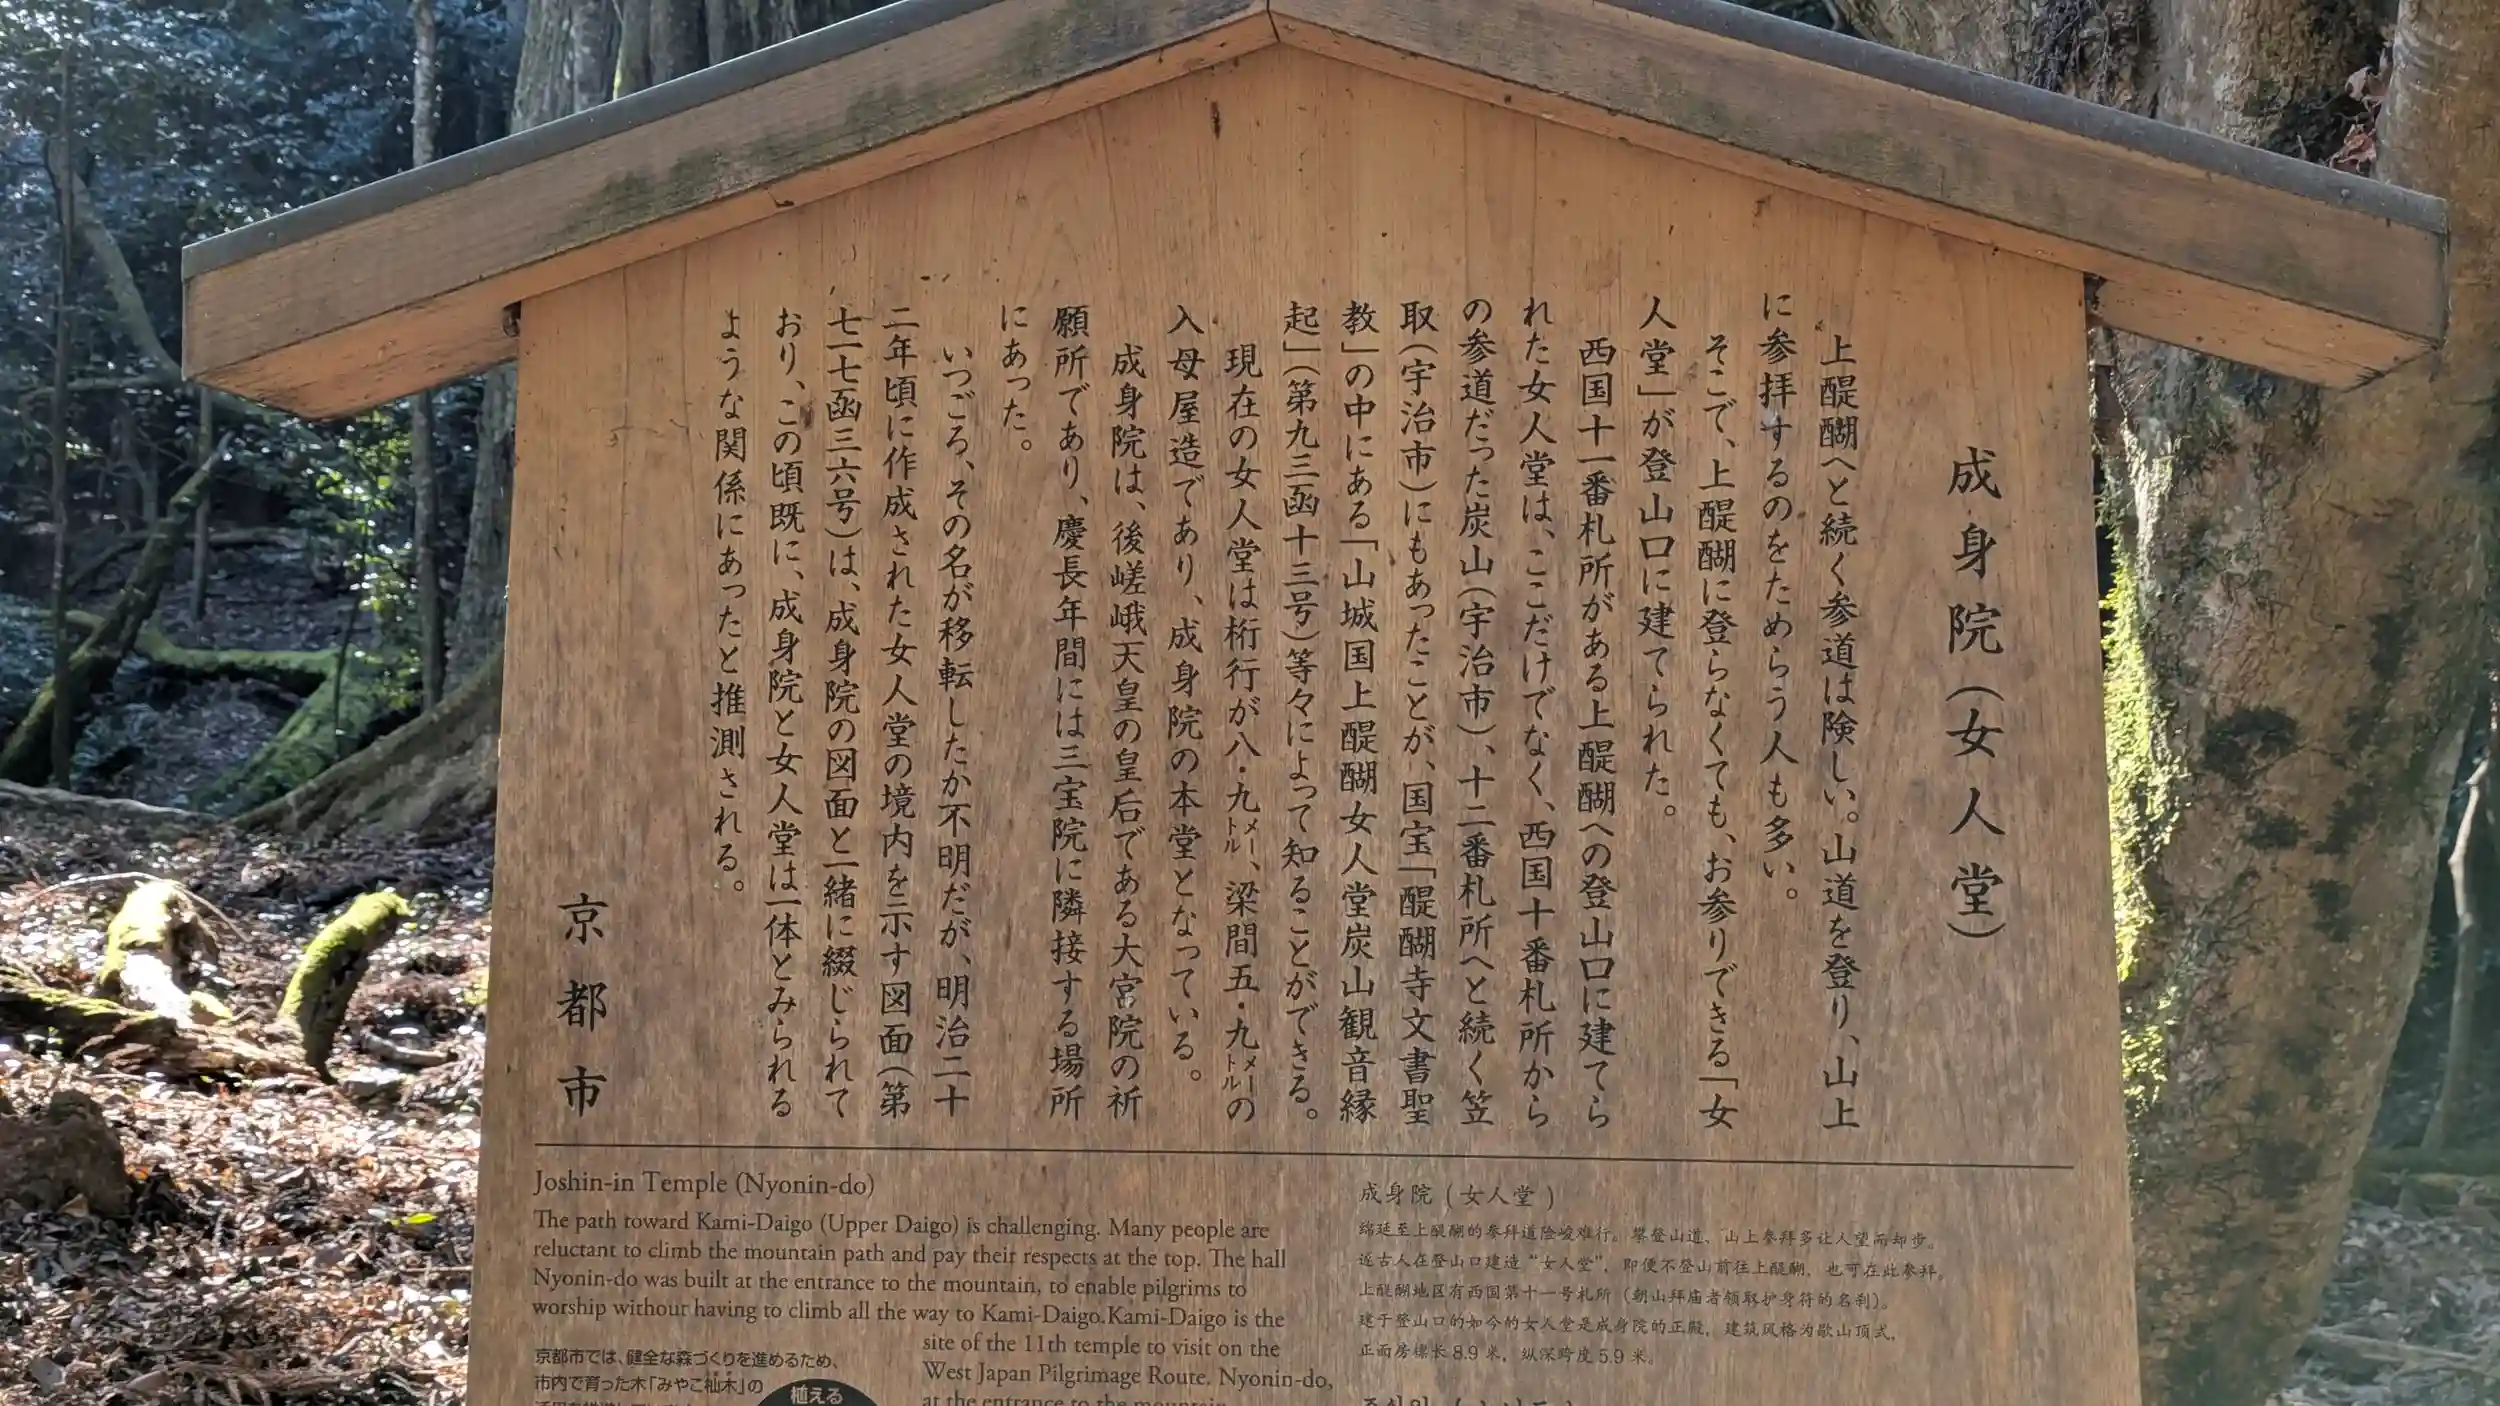 成身院(女人堂)
上醍醐へと続く参道は険しい。山道を登り、山上
に参拝するのをためらう人も多い。
そこで、上醍醐に登らなくても、お参りできる「女
人堂」が登山口に建てられた。
西国十一番札所がある上醍醐への登山口に建てら
れた女人堂は、ここだけでなく、西国十番札所から
の参道だった炭山(宇治市)、十二番札所へと続く笠
取(宇治市)にもあったことが、国宝「醍醐寺文書聖
教」の中にある「山城国上醍醐女人堂炭山観音縁
起」(第九三函十三号)等々によって知ることができる。
現在の女人堂は桁行が八・九メートル、梁間五・九メートルの
入母屋造であり、成身院の本堂となっている。
成身院は、後嵯峨天皇の皇后である大宮院の祈
願所であり、慶長年間には三宝院に隣接する場所
にあった。
いつごろ、その名が移転したか不明だが、明治二十
二年頃に作成された女人堂の境内を示す図面(第
七一七函三六号)は、成身院の図面と一緒に綴じられて
おり、この頃既に、成身院と女人堂は一体とみられる
ような関係にあったと推測される。
京都市
Joshin-in Temple (Nyonin-do)
The path toward Kami-Daigo (Upper Daigo) is challenging. Many people are
reluctant to climb the mountain path and pay their respects at the top. The hall
Nyonin-do was built at the entrance to the mountain, to enable pilgrims to
worship without having to climb all the way to Kami-Daigo.Kami-Daigo is the
site of the 11th temple to visit on the
West Japan Pilgrimage Route. Nyonin-do,
at the entrance to the mountain
京都市では、健全な森づくりを進めるため、
市内で育った木「みやこ杣木」の
植える
成身院(女人堂)
绵延至上醍醐的参拜道险峻难行。攀登山道、山上参拜多让人望而却步。
遂古人在登山口建造“女人堂”，即便不登山前往上醍醐，也可在此参拜。
上醍醐地区有西国第十一号札所（朝山拜庙者领取护身符的名刹）。
建于登山口的如今的女人堂是成身院的正殿，建筑风格为歇山顶式，
正面房檩长8.9米，纵深跨度5.9米。